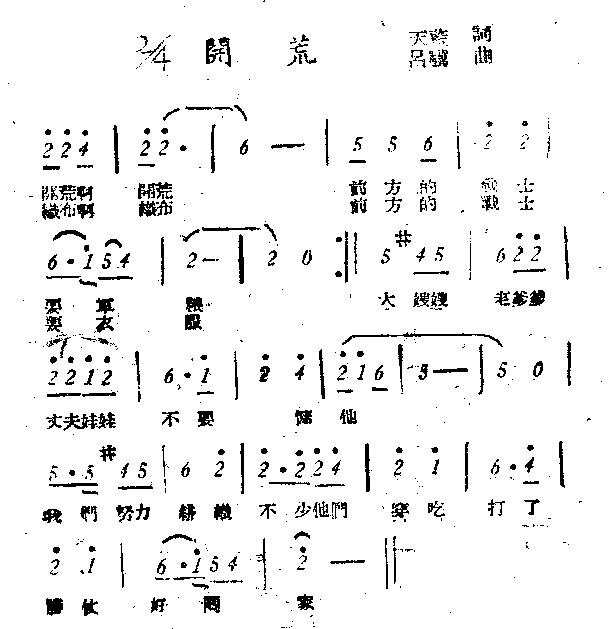 2/4 開荒 天藍 詞
呂驥 曲
2 2 4 | 2 2 • | 6 — | 5 5 6 | 2 2 |
開荒啊 開荒 前方的 戰士
織布啊 織布 前方的 戰士
6 • 1 5 4 | 2 — | 2 0 :‖ 5 #4 5 | 6 2 2 |
要軍 糧 大嫂嫂 老爹爹
要衣 服
2 2 1 2 | 6 • 1 | 2 4 | 2 1 6 | 5 — | 5 0 |
丈夫娃娃 不要 慷他
5 • 5 #4 5 | 6 2 | 2 • 2 2 4 | 2 1 | 6 • 4 |
我們努力 耕織 不少他們 穿吃 打了
2 1 | 6 • 1 5 4 | 2 — ‖
勝仗 好回 家